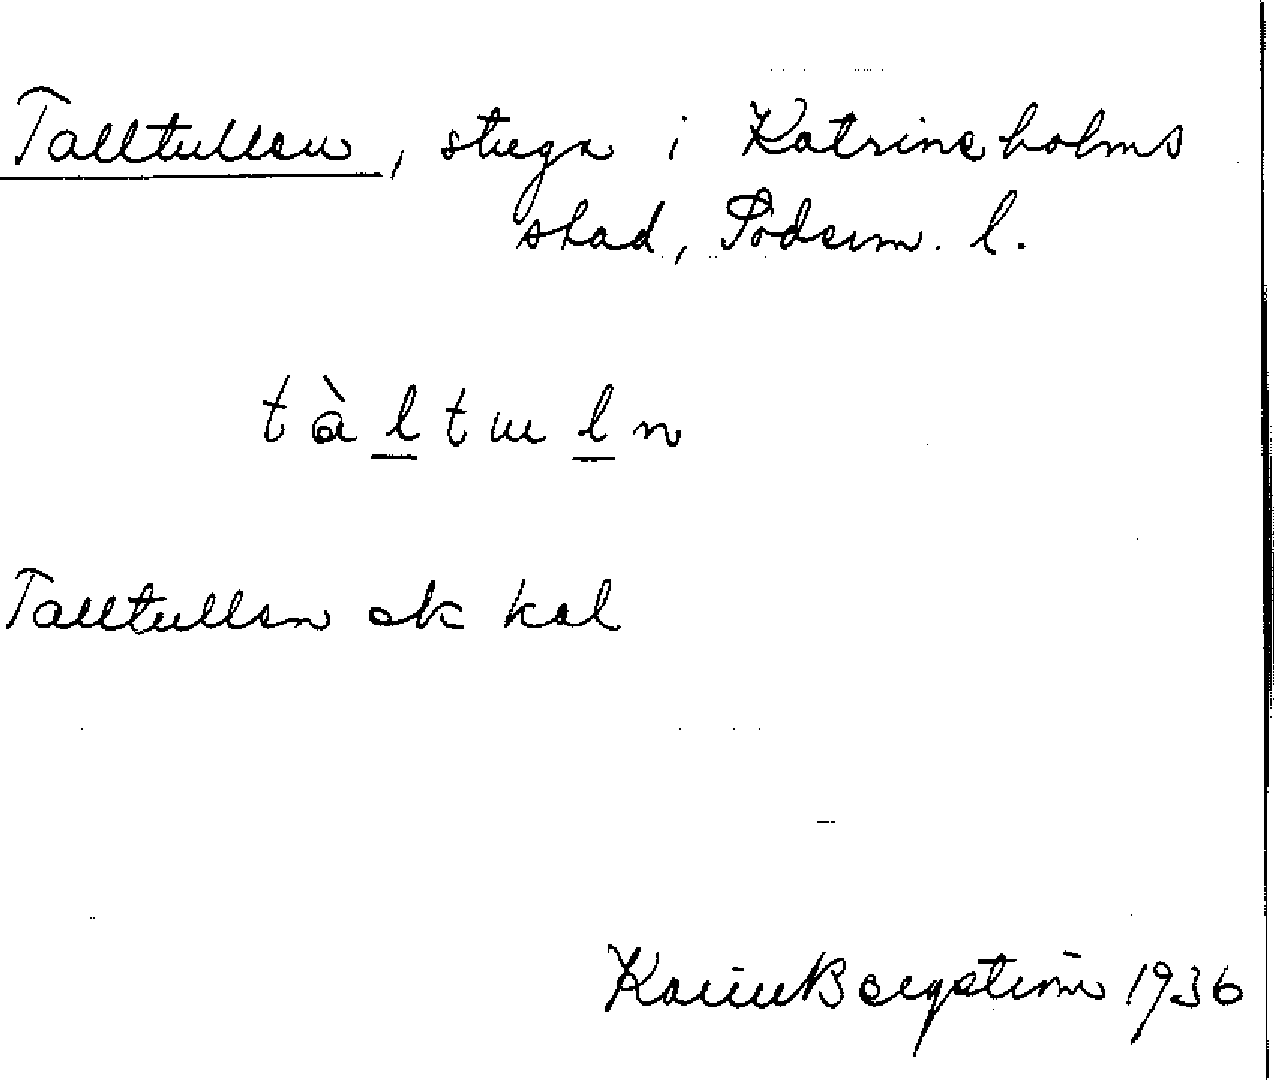 Talltullen, stuga i Katrineholms
stad, Söderm. l.
tàltɯln
Talltullen ek kal
Karin Bergström 1936